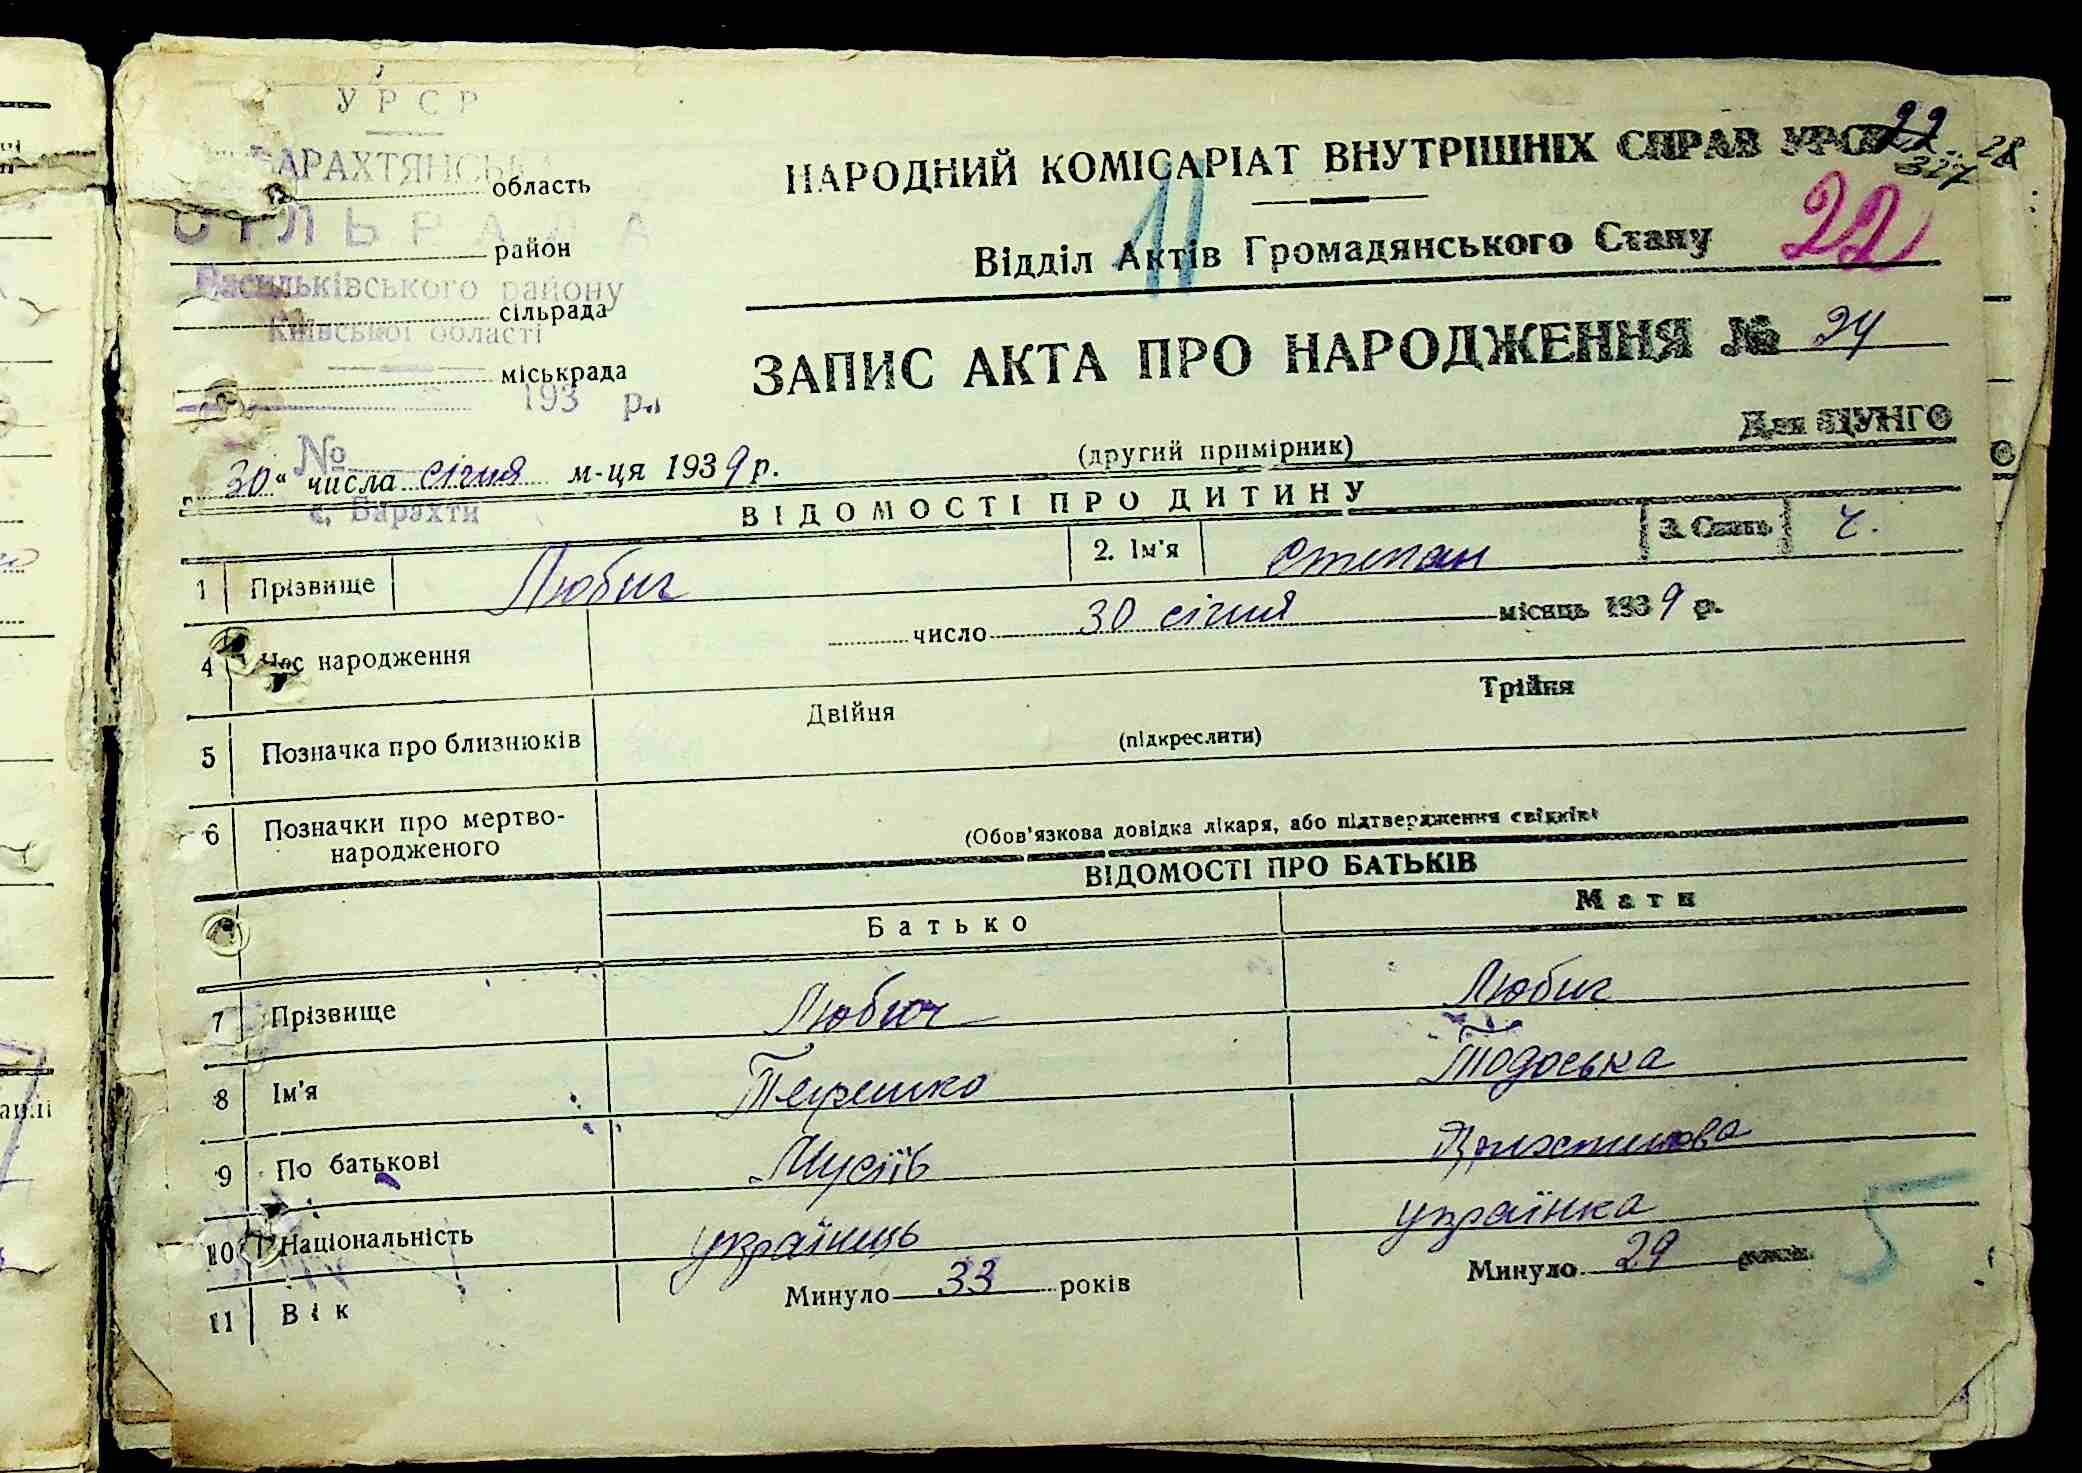 УРСР
БАРАХТЯНСЬКА
область
СІЛЬРАДА
район
Васильківського району
сільрада
Київської області
міськрада
193 р.
№
с. Барахти
НАРОДНИЙ КОМІСАРІАТ ВНУТРІШНІХ СПРАВ УРСР
22
327
28
11
22
Відділ Актів Громадянського Стану
ЗАПИС АКТА ПРО НАРОДЖЕННЯ № 24
(другий примірник)
Для ЦУНГО
„30“ числа січня м-ця 1939 р.
ВІДОМОСТІ ПРО ДИТИНУ
1 Прізвище Любич 2. Ім'я Степан 3. Стать ч.
4 Час народження число 30 січня місяць 1939 р.
5 Позначка про близнюків Двійня Трійня
(підкреслити)
6 Позначки про мертво-
народженого
(Обов'язкова довідка лікаря, або підтвердження свідків)
ВІДОМОСТІ ПРО БАТЬКІВ
Батько Мати
7 Прізвище Любич Любич
8 Ім'я Терешко Тодоська
9 По батькові Мусіїв
10 Національність українець українка
11 Вік Минуло 33 років Минуло 29 років
5